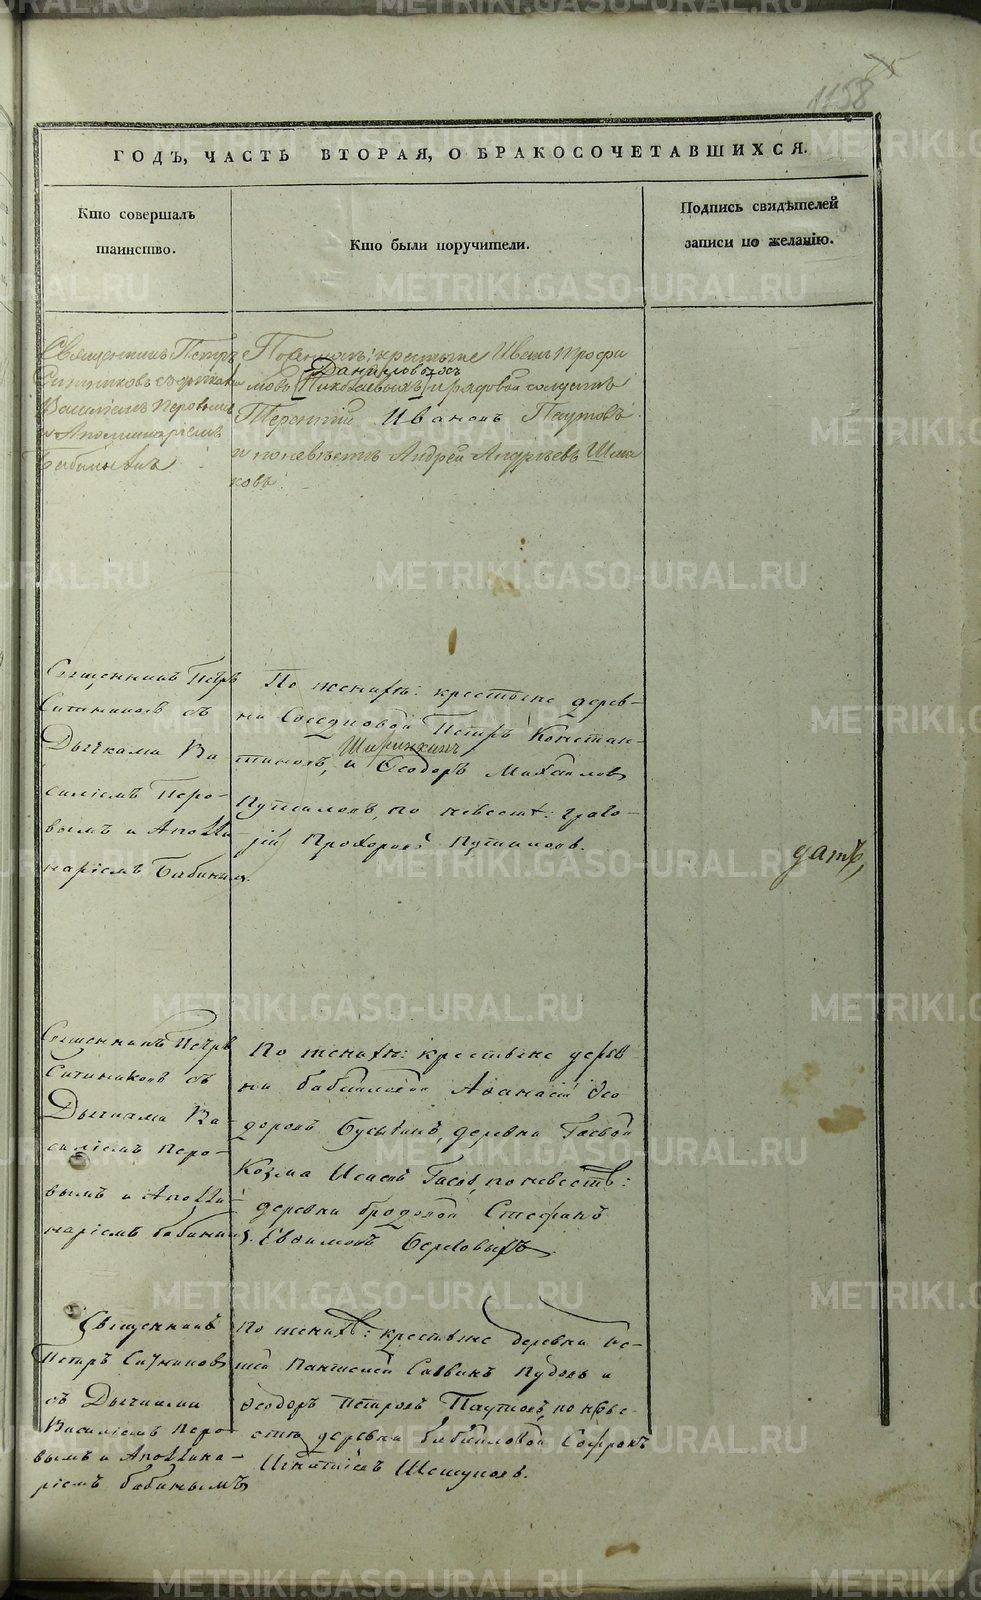 1158
ГОДЪ, ЧАСТЬ ВТОРАЯ, О БРАКОСОЧЕТАВШИХСЯ.
Кто совершалъ
таинство.
Кто были поручители.
Подпись свидѣтелей
записи по желанію.
Священникъ Петръ
Ситниковъ съ дьячками
Василіемъ Перовымъ
и Аполлинаріемъ
Бабинымъ
По женихѣ: крестьяне Иванъ Трофи
Даниловыхъ
мовъ [Николаевыхъ] и рядовой солдатъ
Терентій Ивановъ Паутовъ
и по невѣстѣ Андрей Андреевъ Шма
ковъ.
Священникъ Петръ
Ситниковъ съ
Дьячками Ва
силіемъ Перо-
вымъ и Аполли-
наріемъ Бабинымъ.
По женихѣ: крестьяне дерев-
ни Петръ Констан-
Ширинкинъ
тиновъ, и Ѳеодоръ Михаиловъ
Путиловъ, по невестѣ:
Прохоровъ Путиловъ.
датѣ,
Священникъ Петръ
Ситниковъ съ
Дьячками Ва-
силіемъ Перо-
вымъ и Аполли-
наріемъ Бабинымъ.
По женихѣ: крестьяне дерев
ни Аѳанасій Ѳео
доровъ деревни Гаевой
Козма Исаевъ Гаевъ, по невестѣ:
деревни бродовой Стефанъ
Евѳимовъ
Священникъ
Петръ Ситниковъ
съ Дьячками
Василіемъ Перо-
вымъ и Аполлина-
ріемъ бабинымъ
По женихѣ: крестьяне деревни
Пантелей Саввинъ и
Ѳеодоръ Петровъ Паутовъ, по неве-
стѣ деревни Софронъ
Игнатіевъ Шешуковъ.
METRIKI.GASO-URAL.RU